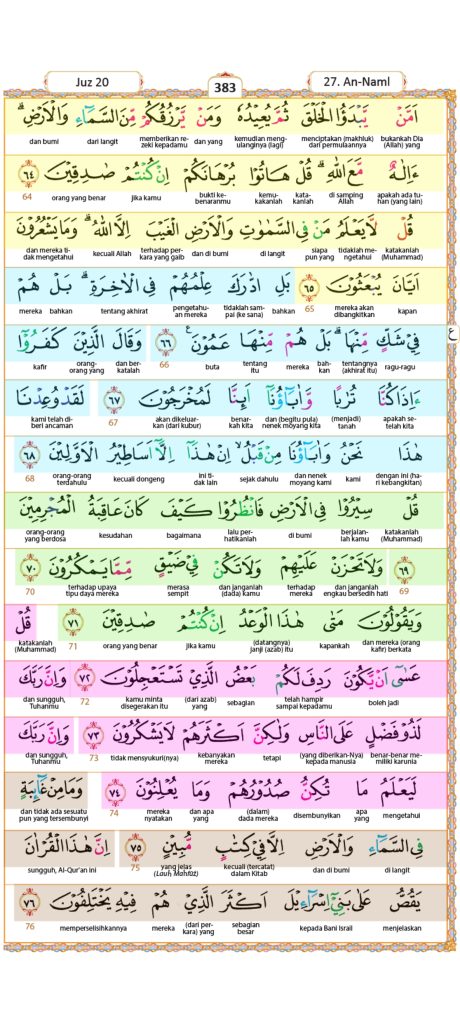 Juz 20
383
27. An-Naml
اَمَّنْ يَّبْدَؤُا الْخَلْقَ ثُمَّ يُعِيْدُهٗ وَمَنْ يَّرْزُقُكُمْ مِّنَ السَّمَاۤءِ وَالْاَرْضِۗ
bukankah Dia (Allah) yang menciptakan (makhluk) dari permulaannya kemudian mengulanginya (lagi) dan yang memberikan rezeki kepadamu dari langit dan bumi
ءَاِلٰهٌ مَّعَ اللّٰهِۗ قُلْ هَاتُوْا بُرْهَانَكُمْ اِنْ كُنْتُمْ صٰدِقِيْنَ ٦٤
apakah ada tuhan (yang lain) di samping Allah katakanlah kemukakanlah bukti kebenaranmu jika kamu orang yang benar 64
قُلْ لَّا يَعْلَمُ مَنْ فِى السَّمٰوٰتِ وَالْاَرْضِ الْغَيْبَ اِلَّا اللّٰهُۗ وَمَا يَشْعُرُوْنَ
katakanlah (Muhammad) tidaklah mengetahui siapa pun yang di langit dan di bumi terhadap perkara yang gaib kecuali Allah dan mereka tidak mengetahui
اَيَّانَ يُبْعَثُوْنَ ٦٥ بَلِ ادّٰرَكَ عِلْمُهُمْ فِى الْاٰخِرَةِۗ بَلْ هُمْ
kapan mereka akan dibangkitkan 65 bahkan tidaklah sampai (ke sana) pengetahuan mereka tentang akhirat bahkan mereka
فِيْ شَكٍّ مِّنْهَاۗ بَلْ هُمْ مِّنْهَا عَمُوْنَ ࣖ ٦٦ وَقَالَ الَّذِيْنَ كَفَرُوْٓا
ragu-ragu tentangnya (akhirat itu) bahkan mereka tentang itu buta 66 dan berkatalah orang-orang yang kafir
ع
ءَاِذَا كُنَّا تُرٰبًا وَّاٰبَاۤؤُنَآ اَىِٕنَّا لَمُخْرَجُوْنَ ٦٧ لَقَدْ وُعِدْنَا
apakah setelah kita (menjadi) tanah dan (begitu pula) nenek moyang kita benarkah kita akan dikeluarkan (dari kubur) 67 kami telah diberi ancaman
هٰذَا نَحْنُ وَاٰبَاۤؤُنَا مِنْ قَبْلُۙ اِنْ هٰذَآ اِلَّآ اَسَاطِيْرُ الْاَوَّلِيْنَ ٦٨
dengan ini (hari kebangkitan) kami dan nenek moyang kami sejak dahulu ini tidak lain kecuali dongeng orang-orang terdahulu 68
قُلْ سِيْرُوْا فِى الْاَرْضِ فَانْظُرُوْا كَيْفَ كَانَ عَاقِبَةُ الْمُجْرِمِيْنَ
katakanlah (Muhammad) berjalanlah kamu di bumi lalu perhatikanlah bagaimana kesudahan orang-orang yang berdosa
٦٩ وَلَا تَحْزَنْ عَلَيْهِمْ وَلَا تَكُنْ فِيْ ضَيْقٍ مِّمَّا يَمْكُرُوْنَ ٧٠
69 dan janganlah engkau bersedih hati terhadap mereka dan janganlah (dada) kamu merasa sempit terhadap upaya tipu daya mereka 70
وَيَقُوْلُوْنَ مَتٰى هٰذَا الْوَعْدُ اِنْ كُنْتُمْ صٰدِقِيْنَ ٧١ قُلْ
dan mereka (orang kafir) berkata kapankah (datangnya) janji (azab) itu jika kamu orang yang benar 71 katakanlah (Muhammad)
عَسٰٓى اَنْ يَّكُوْنَ رَدِفَ لَكُمْ بَعْضُ الَّذِيْ تَسْتَعْجِلُوْنَ ٧٢ وَاِنَّ رَبَّكَ
boleh jadi telah hampir sampai kepadamu sebagian (dari azab) yang kamu minta disegerakan itu 72 dan sungguh, Tuhanmu
لَذُوْ فَضْلٍ عَلَى النَّاسِ وَلٰكِنَّ اَكْثَرَهُمْ لَا يَشْكُرُوْنَ ٧٣ وَاِنَّ رَبَّكَ
benar-benar memiliki karunia (yang diberikan-Nya) kepada manusia tetapi kebanyakan mereka tidak mensyukuri(nya) 73 dan sungguh, Tuhanmu
لَيَعْلَمُ مَا تُكِنُّ صُدُوْرُهُمْ وَمَا يُعْلِنُوْنَ ٧٤ وَمَا مِنْ غَاۤىِٕبَةٍ
mengetahui apa yang disembunyikan (dalam) dada mereka dan apa yang mereka nyatakan 74 dan tidak ada sesuatu pun yang tersembunyi
فِى السَّمَاۤءِ وَالْاَرْضِ اِلَّا فِيْ كِتٰبٍ مُّبِيْنٍ ٧٥ اِنَّ هٰذَا الْقُرْاٰنَ
di langit dan di bumi kecuali (tercatat) dalam Kitab yang jelas (Lauḥ Maḥfūẓ) 75 sungguh, Al-Qur'an ini
يَقُصُّ عَلٰى بَنِيْٓ اِسْرَاۤءِيْلَ اَكْثَرَ الَّذِيْ هُمْ فِيْهِ يَخْتَلِفُوْنَ ٧٦
menjelaskan kepada Bani Israil sebagian besar (dari perkara) yang mereka memperselisihkannya 76